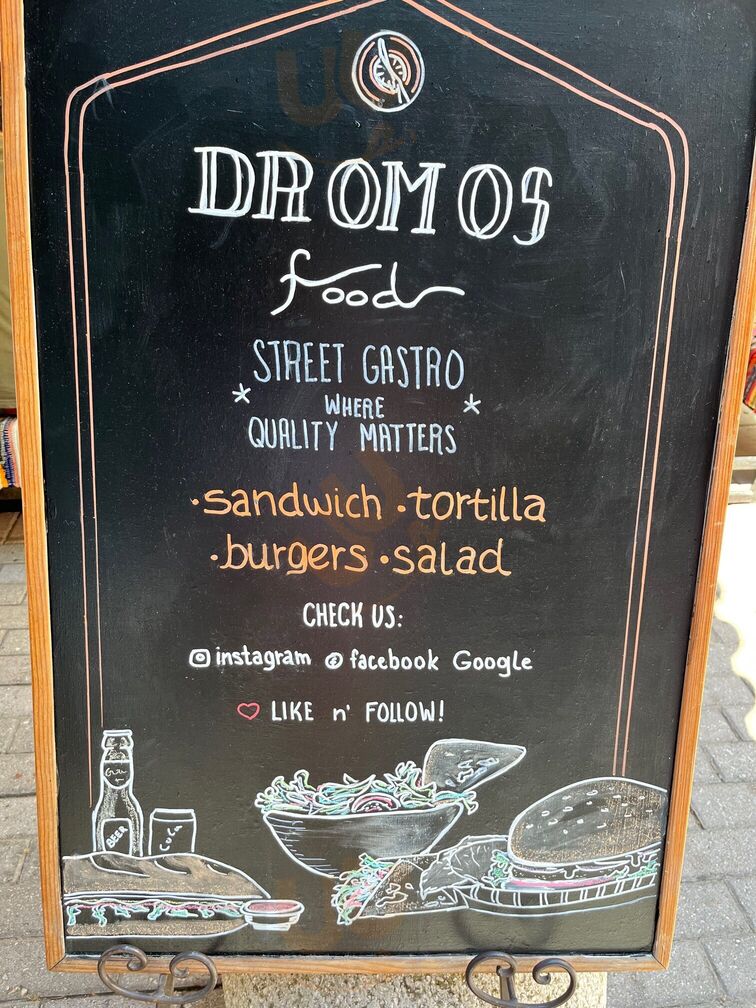 DROMOS
food
STREET GASTRO
* WHERE *
QUALITY MATTERS
·sandwich ·tortilla
·burgers ·salad
CHECK US:
instagram facebook Google
LIKE n' FOLLOW!
BEER
Cola